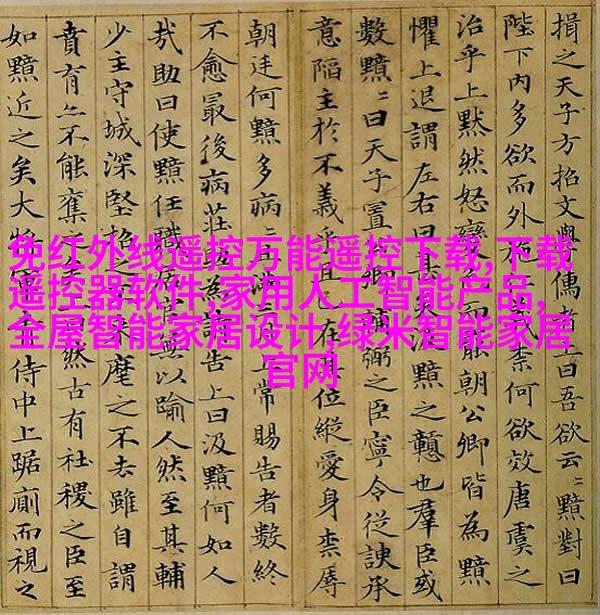 免红外线遥控万能遥控下载,下载
遥控器软件,家用人工智能产品,
全屋智能家居设计,绿米智能家居
官网
揖之天子方招文學儒者上曰吾欲云〻黯對曰
陛下內多欲而外柰何欲效唐虞之
治乎上默然怒變色而罷朝公卿皆為黯
懼上退謂左右曰甚矣黯之戇也羣臣或
數黯〻曰天子置輔弼之臣寧令從諛承
意陷主於不義乎且在其位縱愛身柰辱
朝廷何黯多病〻且滿三上常賜告者數終
不愈最後病莊助為請告上曰汲黯何如人
哉助曰使黯任職居官無以踰人然至其輔
少主守城深堅招之不麾之不去雖自謂
賁育亦不能奪之然古有社稷之臣至
如黯近之矣大將侍中上踞廁而視之